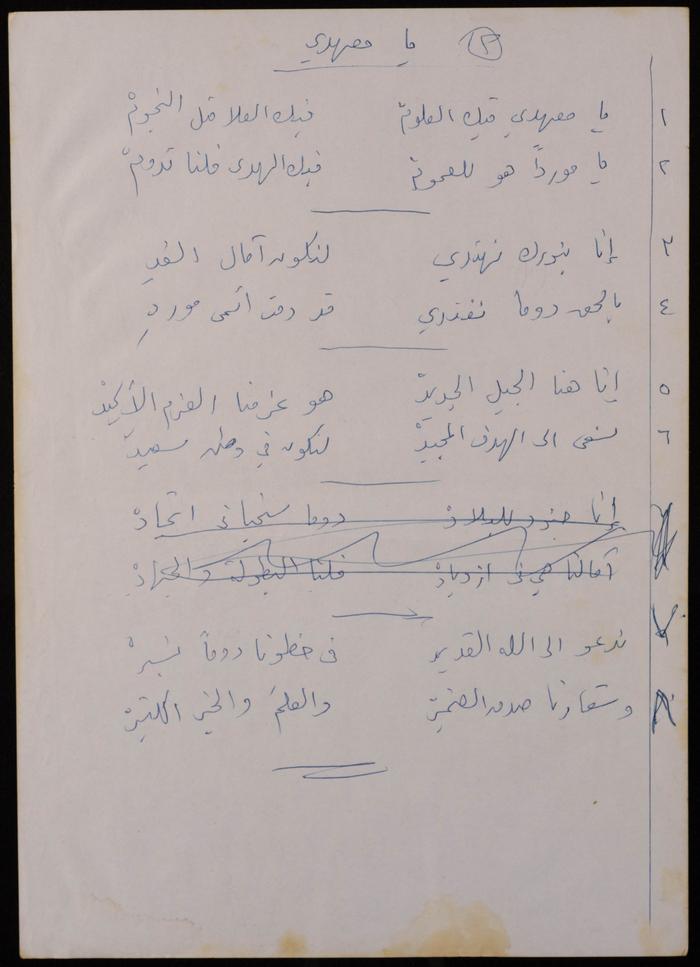 (٢) يا معهدي
١ يا معهدي فيك العلومْ فيك العلا مثل النجومْ
٢ يا مورداً هو للعمومْ فيك الهدى فلنا تدومْ
٣ إنا بنورك نهتدي لنكون آمال الغدِ
٤ بالحق دوما نفتدي قد دمت أسمى موردِ
٥ إنا هنا الجيل الجديدْ هو عزمنا العزم الأكيدْ
٦ نسعى الى الهدف المجيدْ لنكون في وطن سعيدْ
إنا جنود للبلادْ دوما سنحيا في اتحادْ
آمالنا هي في ازديادْ فلنا البطولة والجهادْ
٧ ندعو الى الله القدير في خطونا دوماً نسيرْ
٨ وشعارنا صدق الضميرْ والعلمَ والخير الكثيرْ